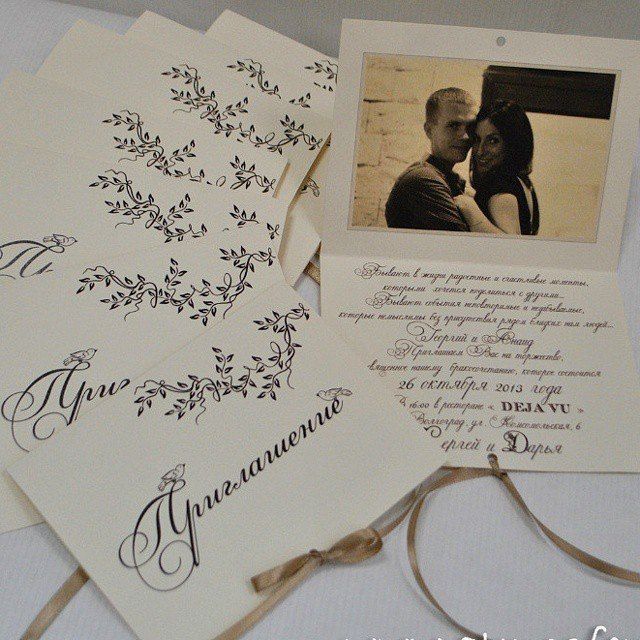 Приглашение
При
При
Бывают в жизни радостные и счастливые моменты,
которыми хочется поделиться с другими...
Бывают события неповторимые и
которые немыслимы без присутствия рядом близких там людей...
Георгий и Анаид
Приглашаем Вас на торжество,
нашему бракосочетанию, которое состоится
26 октября 2013 года
В 16:00 в ресторане « DEJA VU »
Волгоград ул. Комсомольская, 6
ергей и Дарья